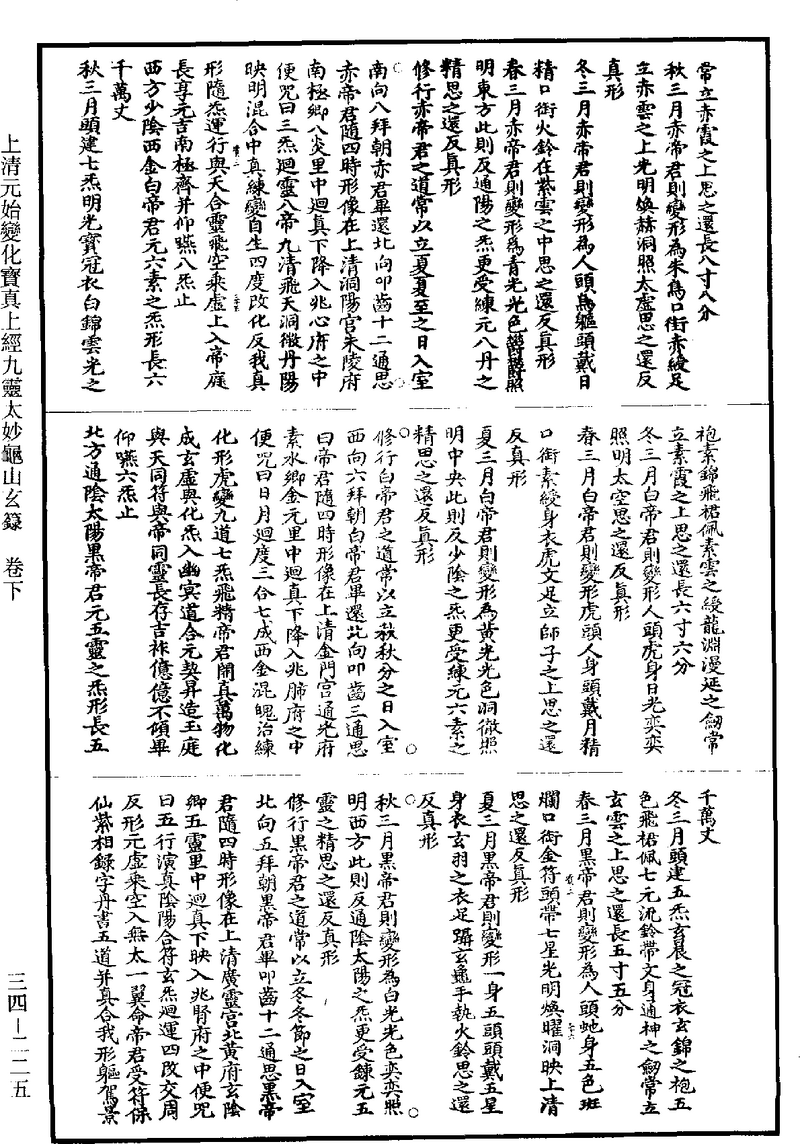 常立赤霞之上思之還長八寸八分
秋三月赤帝君則變形為朱鳥口銜赤綬足
立赤雲之上光明煥赫洞照太虛思之還反
真形
冬三月赤帝君則變形為人頭鳥軀頭戴日
精口銜火鈴在紫雲之中思之還反真形
春三月赤帝君則變形為青光光色欝欝照
明東方此則反通陽之炁更受練元八丹之
精思之還反真形
修行赤帝君之道常以立夏夏至之日入室
南向八拜朝赤君畢還北向叩齒十二通思
赤帝君隨四時形像在上清洞陽宮朱陵府
南極鄉八炎里中迴真下降入兆心府之中
便咒曰三炁迴靈八帝九清飛天洞微丹陽
映明混合中真練變自生四度改化反我真
形隨炁運行與天合靈飛空乘虛上入帝庭
長享元吉南極齊并仰嚥八炁止
西方少陰西金白帝君元六素之炁形長六
千萬丈
秋三月頭建七炁明光寶冠衣白錦雲光之
袍素錦飛裙佩素雲之綬龍淵漫延之劒常
立素霞之上思之還長六寸六分
冬三月白帝君則變形人頭虎身日光奕奕
照明太空思之還反真形
春三月白帝君則變形虎頭人身頭戴月精
口銜素綬身衣虎文足立師子之上思之還
反真形
夏三月白帝君則變形為黃光光色洞徹照
明中央此則反少陰之炁更受練元六素之
精思之還反真形
修行白帝君之道常以立秋秋分之日入室
西向六拜朝白帝君畢還北向叩齒三通思
白帝君隨四時形像在上清金門宮通光府
素水鄉金元里中迴真下降入兆肺府之中
便咒曰日月迴度三合七成西金混魄治練
化形虎變九道七炁飛精帝君開真萬物化
成玄虛與化炁入幽冥道合元契昇造玉庭
與天同符與帝同靈長存吉祚億億不傾畢
仰嚥六炁止
北方通陰太陽黑帝君元五靈之炁形長五
千萬丈
冬三月頭建五炁玄晨之冠衣玄錦之袍五
色飛裙佩七元流鈴帶文身通神之劒常立
玄雲之上思之還長五寸五分
春三月黑帝君則變形為人頭虵身五色班
爛口銜金符頭帶七星光明煥曜洞映上清
思之還反真形
夏三月黑帝君則變形一身五頭頭戴五星
身衣玄羽之衣足躡玄龜手執火鈴思之還
反真形
秋三月黑帝君則變形為白光光色奕奕照
明西方此則反通陰太陽之炁更受鍊元五
靈之精思之還反真形
修行黑帝君之道常以立冬冬節之日入室
北向五拜朝黑帝君畢叩齒十二通思黑帝
君隨四時形像在上清廣靈宮北黃府玄陰
鄉五靈里中迴真下映入兆腎府之中便咒
曰五行演真陰陽合符玄炁迴運四改交周
反形元虛乘空入無太一翼命帝君受符保
仙紫相錄字丹書五道并真合我形軀駕景
上清元始變化寶真上經九靈太妙龜山玄籙　卷下
三四－二二五